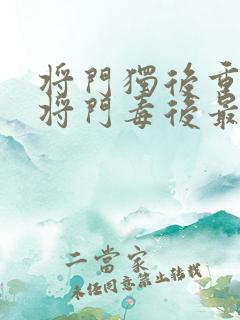 将門獨後重
将門毒後最
二當家
未經同意禁止轉載